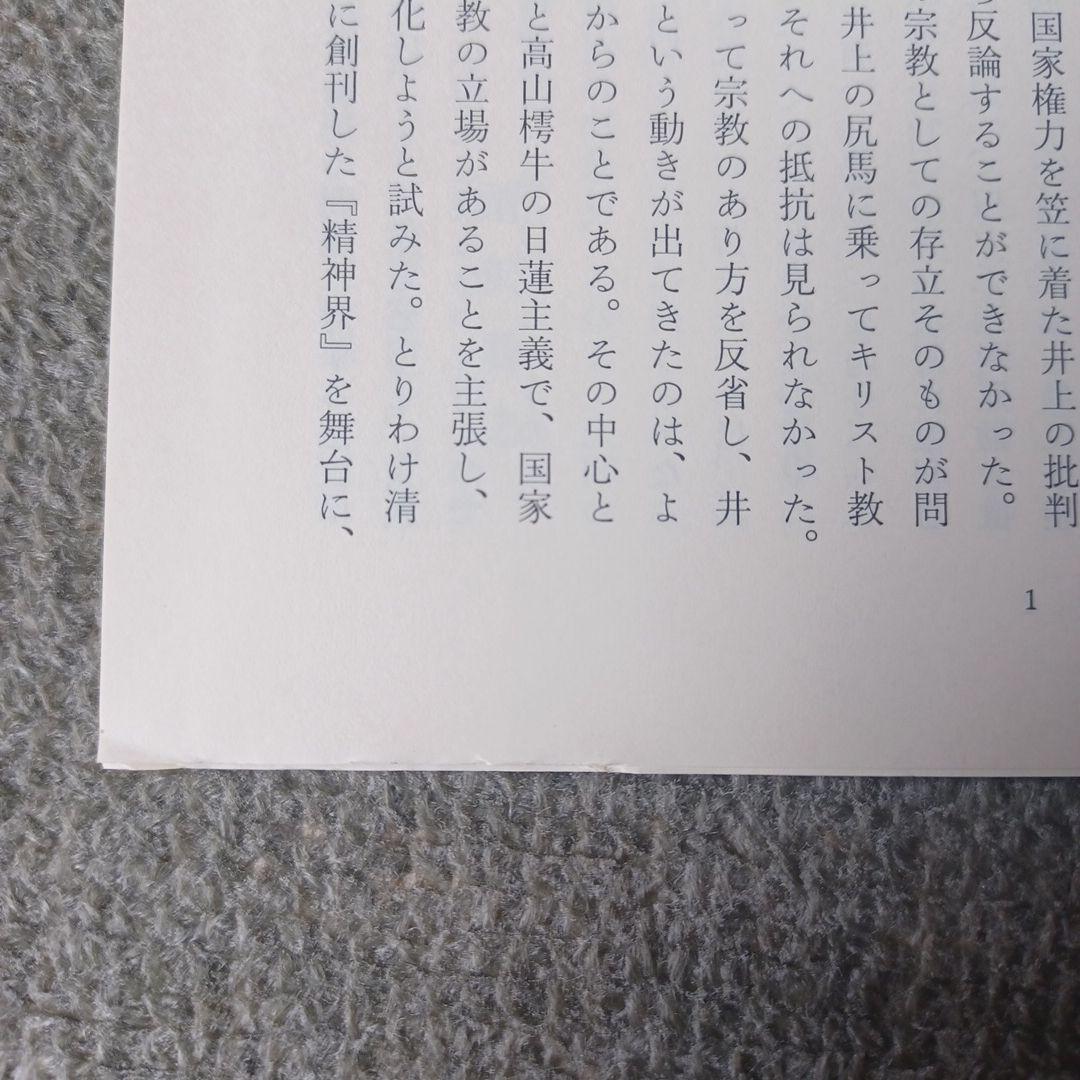 国家権力を笠に着た井上の批判
反論することができなかった。
宗教としての存立そのものが問
井上の尻馬に乗ってキリスト教
それへの抵抗は見られなかった。
って宗教のあり方を反省し、井
という動きが出てきたのは、よ
からのことである。その中心と
と高山樗牛の日蓮主義で、国家
教の立場があることを主張し、
化しようと試みた。とりわけ清
に創刊した『精神界』を舞台に、
1